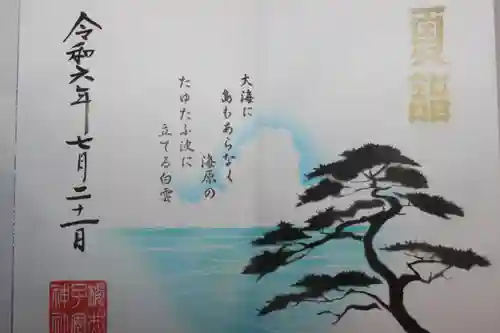 夏詣
大海に
島もあらなく
海原の
たゆたふ波に
立てる白雲
令和六年七月二十一日
神社